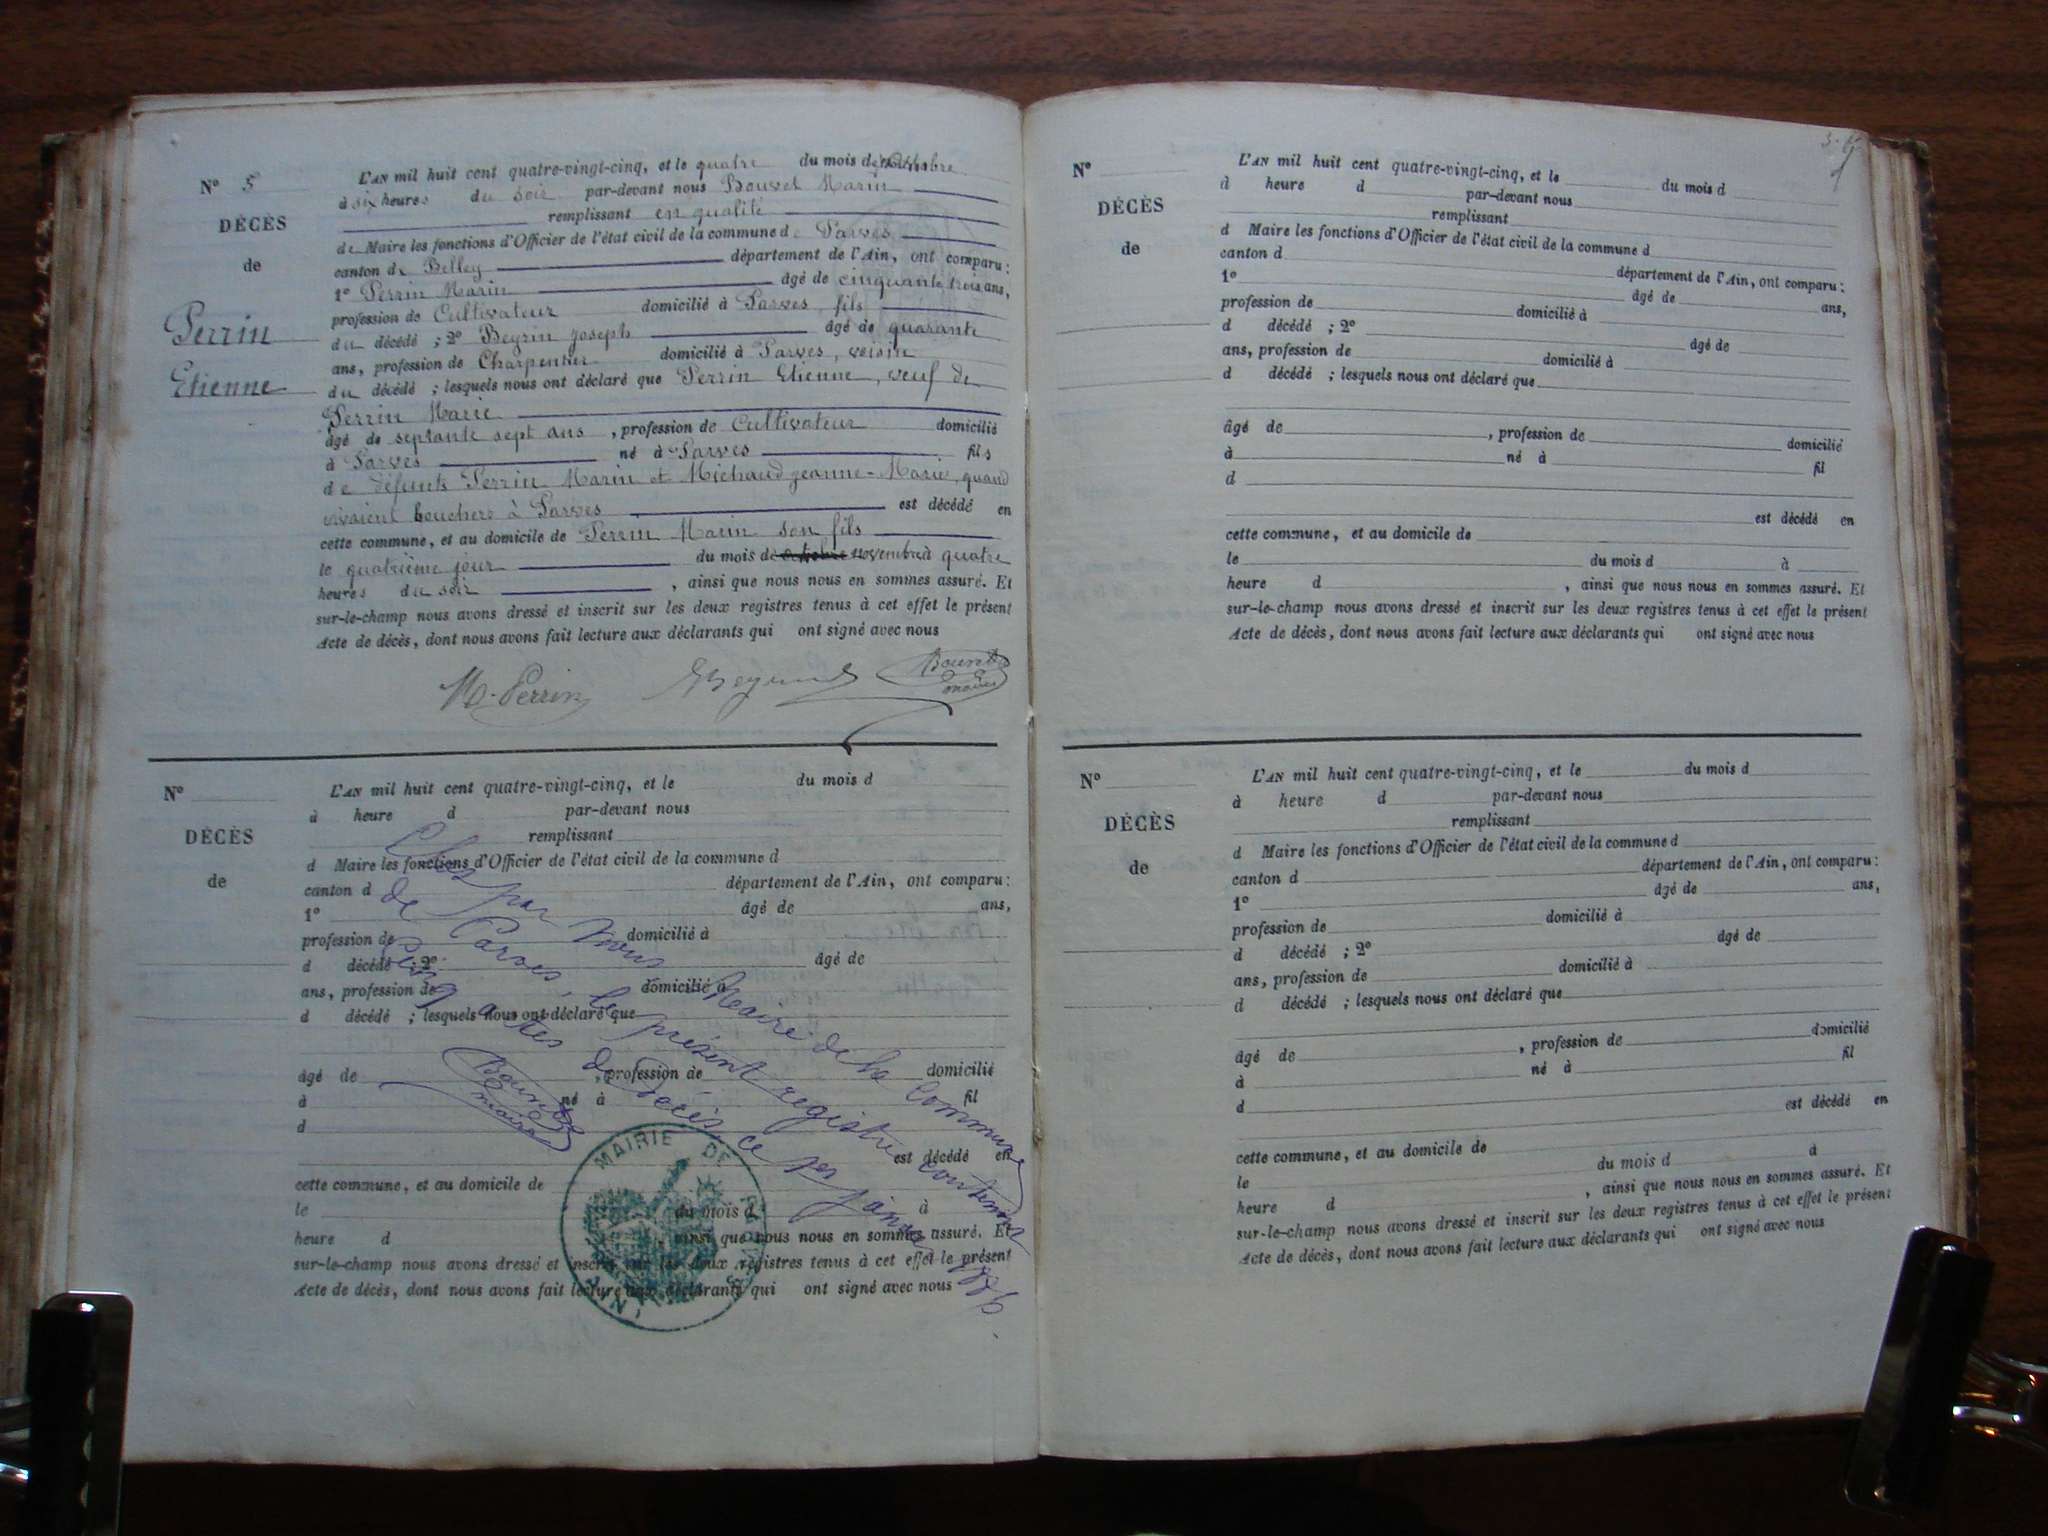 N° 5
DÉCÈS
de
Perrin
Etienne
L'AN mil huit cent quatre-vingt-cinq, et le quatre du mois de
à six heures du soir par-devant nous Bouvet Marin
remplissant en qualité
de Maire les fonctions d'Officier de l'état civil de la commune de Parves
canton de Belley département de l'Ain, ont comparu:
1° Perrin Marin âgé de cinquante trois ans,
profession de Cultivateur domicilié à Parves, fils
du décédé ; 2° Beyrin Joseph âgé de quarante
ans, profession de Charpentier domicilié à Parves, voisin
du décédé ; lesquels nous ont déclaré que Perrin Etienne, veuf de
Perrin Marie
âgé de septante sept ans , profession de Cultivateur domicilié
à Parves né à Parves fils
de défunts Perrin Marin et Michaud Jeanne-Marie, quand
vivaient bouchers à Parves est décédé en
cette commune, et au domicile de Perrin Marin son fils
le quatrième jour du mois de octobre novembre à quatre
heures du soir , ainsi que nous nous en sommes assuré. Et
sur-le-champ nous avons dressé et inscrit sur les deux registres tenus à cet effet le présent
Acte de décès, dont nous avons fait lecture aux déclarants qui ont signé avec nous
M. Perrin Bouvet
maire
N°
DÉCÈS
de
L'AN mil huit cent quatre-vingt-cinq, et le du mois d
à heure d par-devant nous
remplissant
d Maire les fonctions d'Officier de l'état civil de la commune d
canton d département de l'Ain, ont comparu:
1° âgé de ans,
profession de domicilié à
d décédé ; 2° âgé de
ans, profession de domicilié à
d décédé ; lesquels nous ont déclaré que
âgé de , profession de domicilié
à né à fil
d
est décédé en
cette commune, et au domicile de
le du mois d à
heure d , ainsi que nous nous en sommes assuré. Et
sur-le-champ nous avons dressé et inscrit sur les deux registres tenus à cet effet le présent
Acte de décès, dont nous avons fait lecture aux déclarants qui ont signé avec nous
Clos par Nous Maire de la Commune
de Parves, le présent registre contenant
cinq actes de décès, ce 1er janvier 1886.
Bouvet
maire
MAIRIE DE PARVES (AIN)
N°
DÉCÈS
de
L'AN mil huit cent quatre-vingt-cinq, et le du mois d
à heure d par-devant nous
remplissant
d Maire les fonctions d'Officier de l'état civil de la commune d
canton d département de l'Ain, ont comparu:
1° âgé de ans,
profession de domicilié à
d décédé ; 2° âgé de
ans, profession de domicilié à
d décédé ; lesquels nous ont déclaré que
âgé de , profession de domicilié
à né à fil
d
est décédé en
cette commune, et au domicile de
le du mois d à
heure d , ainsi que nous nous en sommes assuré. Et
sur-le-champ nous avons dressé et inscrit sur les deux registres tenus à cet effet le présent
Acte de décès, dont nous avons fait lecture aux déclarants qui ont signé avec nous
N°
DÉCÈS
de
L'AN mil huit cent quatre-vingt-cinq, et le du mois d
à heure d par-devant nous
remplissant
d Maire les fonctions d'Officier de l'état civil de la commune d
canton d département de l'Ain, ont comparu:
1° âgé de ans,
profession de domicilié à
d décédé ; 2° âgé de
ans, profession de domicilié à
d décédé ; lesquels nous ont déclaré que
âgé de , profession de domicilié
à né à fil
d
est décédé en
cette commune, et au domicile de
le du mois d à
heure d , ainsi que nous nous en sommes assuré. Et
sur-le-champ nous avons dressé et inscrit sur les deux registres tenus à cet effet le présent
Acte de décès, dont nous avons fait lecture aux déclarants qui ont signé avec nous